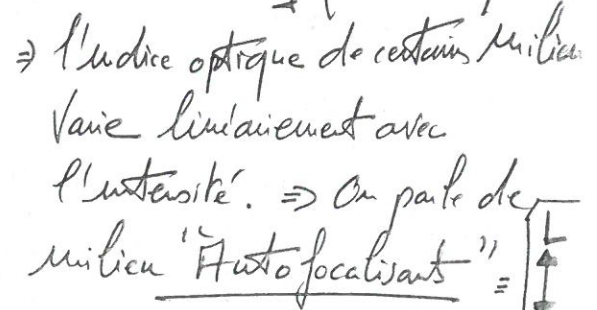 ⇒ l'indice optique de certains milieu
Varie linéairement avec
l'intensité. ⇒ On parle de
milieu "Autofocalisant" =
L